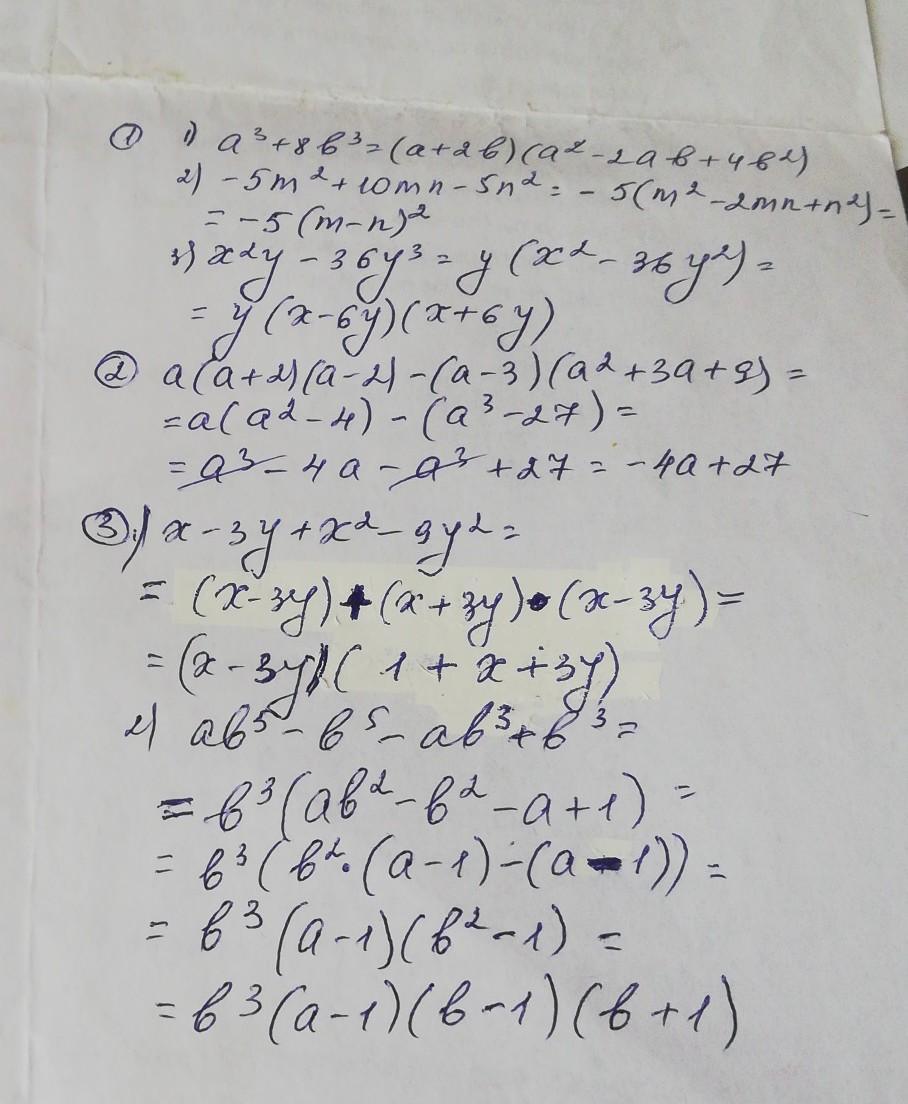 ① 1) a³+8b³=(a+2b)(a²-2ab+4b²)
2) -5m²+10mn-5n²=-5(m²-2mn+n²)=
=-5(m-n)²
3) x²y-36y³=y(x²-36y²)=
=y(x-6y)(x+6y)
② a(a+2)(a-2)-(a-3)(a²+3a+9)=
=a(a²-4)-(a³-27)=
=a³-4a-a³+27=-4a+27
③ 1) x-3y+x²-9y²=
=(x-3y)+(x+3y)•(x-3y)=
=(x-3y)(1+x+3y)
2) ab⁵-b⁵-ab³+b³=
=b³(ab²-b²-a+1)=
=b³(b²·(a-1)-(a-1))=
=b³(a-1)(b²-1)=
=b³(a-1)(b-1)(b+1)